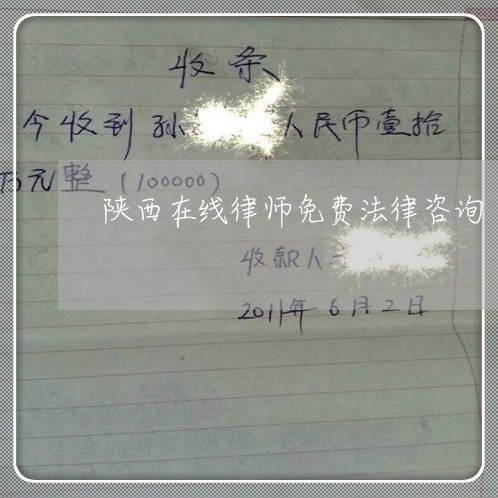 收条
今收到孙 人民币壹拾
万元整(100000)
陕西在线律师免费法律咨询
收款人
2011年6月2日